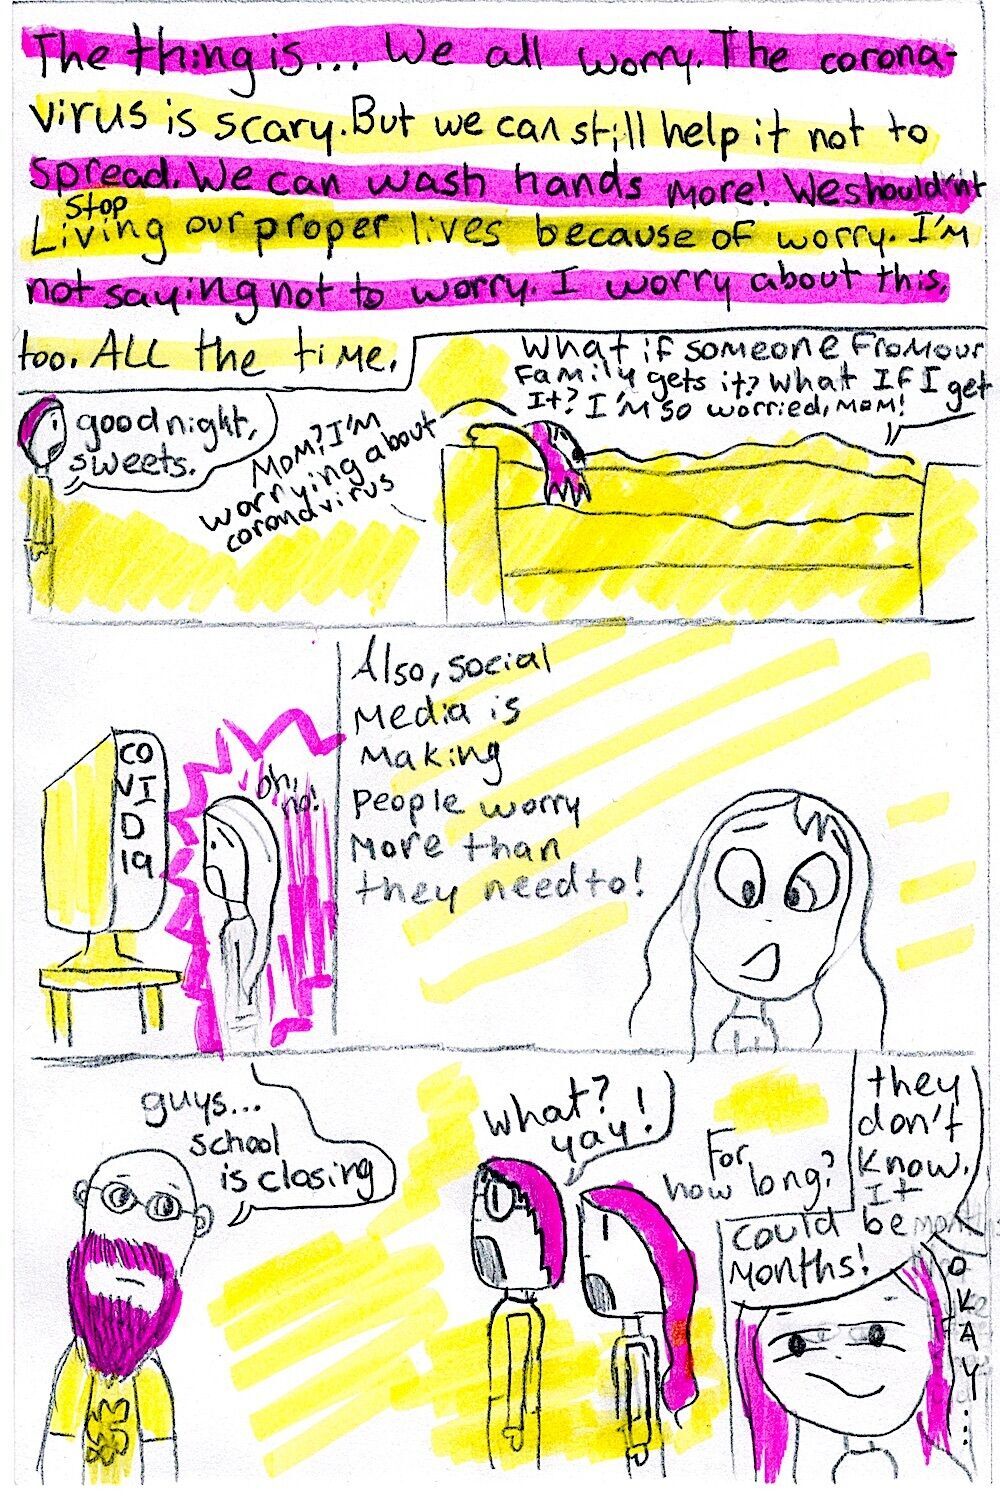 The thing is... We all worry. The corona-
virus is scary. But we can still help it not to
spread. We can wash hands more! We shouldn't
stop
Living our proper lives because of worry. I'm
not saying not to worry. I worry about this,
too. ALL the time.
good night,
sweets.
Mom? I'm
worrying about
coronavirus
What if someone from our
family gets it? What if I get
it? I'm so worried, Mom!
CO
VI
D
19
oh,
no!
Also, social
media is
making
people worry
more than
they need to!
guys...
school
is closing
What?
yay!
For
how long?
they
don't
know.
It
could be
months!
O
K
A
Y
...